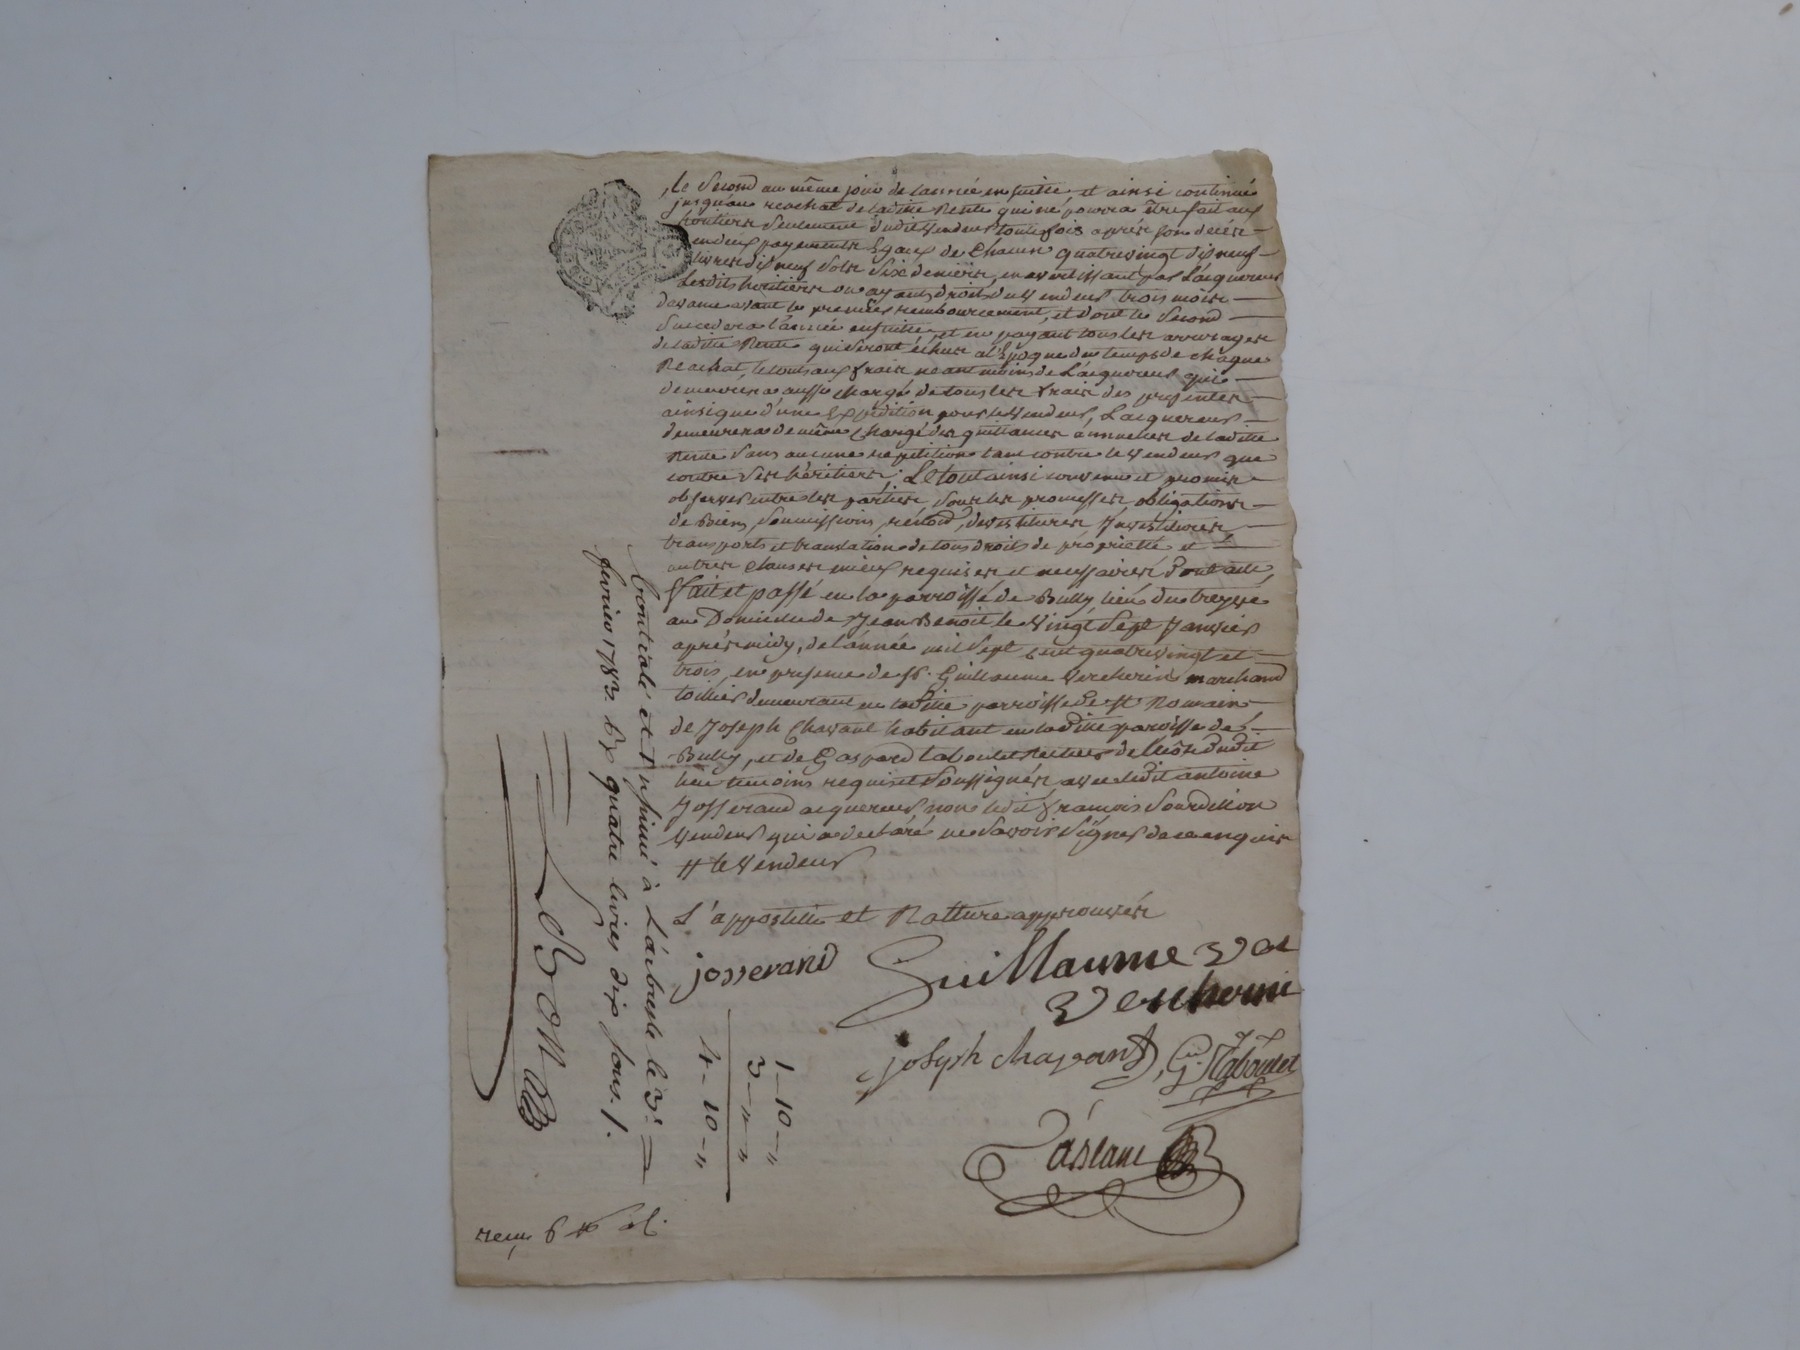 Le Second au même jour de l'année en suitte et ainsi continué
jusqu'au reachat de laditte Rente qui ne pourra être fait aux
héritiers Seulement dudit vendeur toutefois après son décés
en deux payements Egaux de Chacun quatrevingt dix neuf
livres dix neuf Sols Six deniers, en avertissant par L'acquereur
Lesdits heritiers ou ayants droits du vendeur trois mois
davance avant le premier remboursement, et dont le Second
Succedera l'année ensuitte, et en payant tous les arrerages
de laditte Rente qui Seront échus a l'Epoque du temps de chaque
Reachat, le tout aux frais neantmoins de L'acquereur qui
demeurera aussy chargé de tous les frais des presentes
ainsi que d'une Expedition pour le vendeur, L'acquereur
demeurera de même chargé des quittances annuelles de laditte
Rente Sans aucune repetition tant contre le vendeur que
contre Ses héritiers; Le tout ainsi convenu et promis
observer entre les parties Sous les promesses obligations
de Biens, Soumissions, rénonc, devestitures Investitures
transports et translation de tous droits de proprieté et
autres clauses mieux requises et necessaires Dont acte,
Fait et passé en la parroisse de Bully lieu du treyve
au Domicile de Jean Benoit le vingt Sept Janvier
après midy, de l'année mil Sept cent quatrevingt et
trois, en presence de Sr. Guillaume Vercherin marchand
toillier demeurant en laditte parroisse de St Romain
de Joseph Chavant habitant en laditte paroisse de
Bully, et de Gaspard taboulet Recteur de l'école dudit
lieu temoins requis et Soussignés avec ledit antoine
Josserand acquereur non ledit François Sourdillon
vendeur qui a declaré ne Savoir Signer de ce enquis
# le vendeur
L'appostille et Rature approuvées
josserand
Guillaume Ve
Vercherin
joseph chavant
G. Taboulet
1 – 10 – "
3 – " – "
4 – 10 – "
Controlé et Insinué à L'arbresle le 3e
fevrier 1783. Rx quatre livres dix sous.
reçu 6